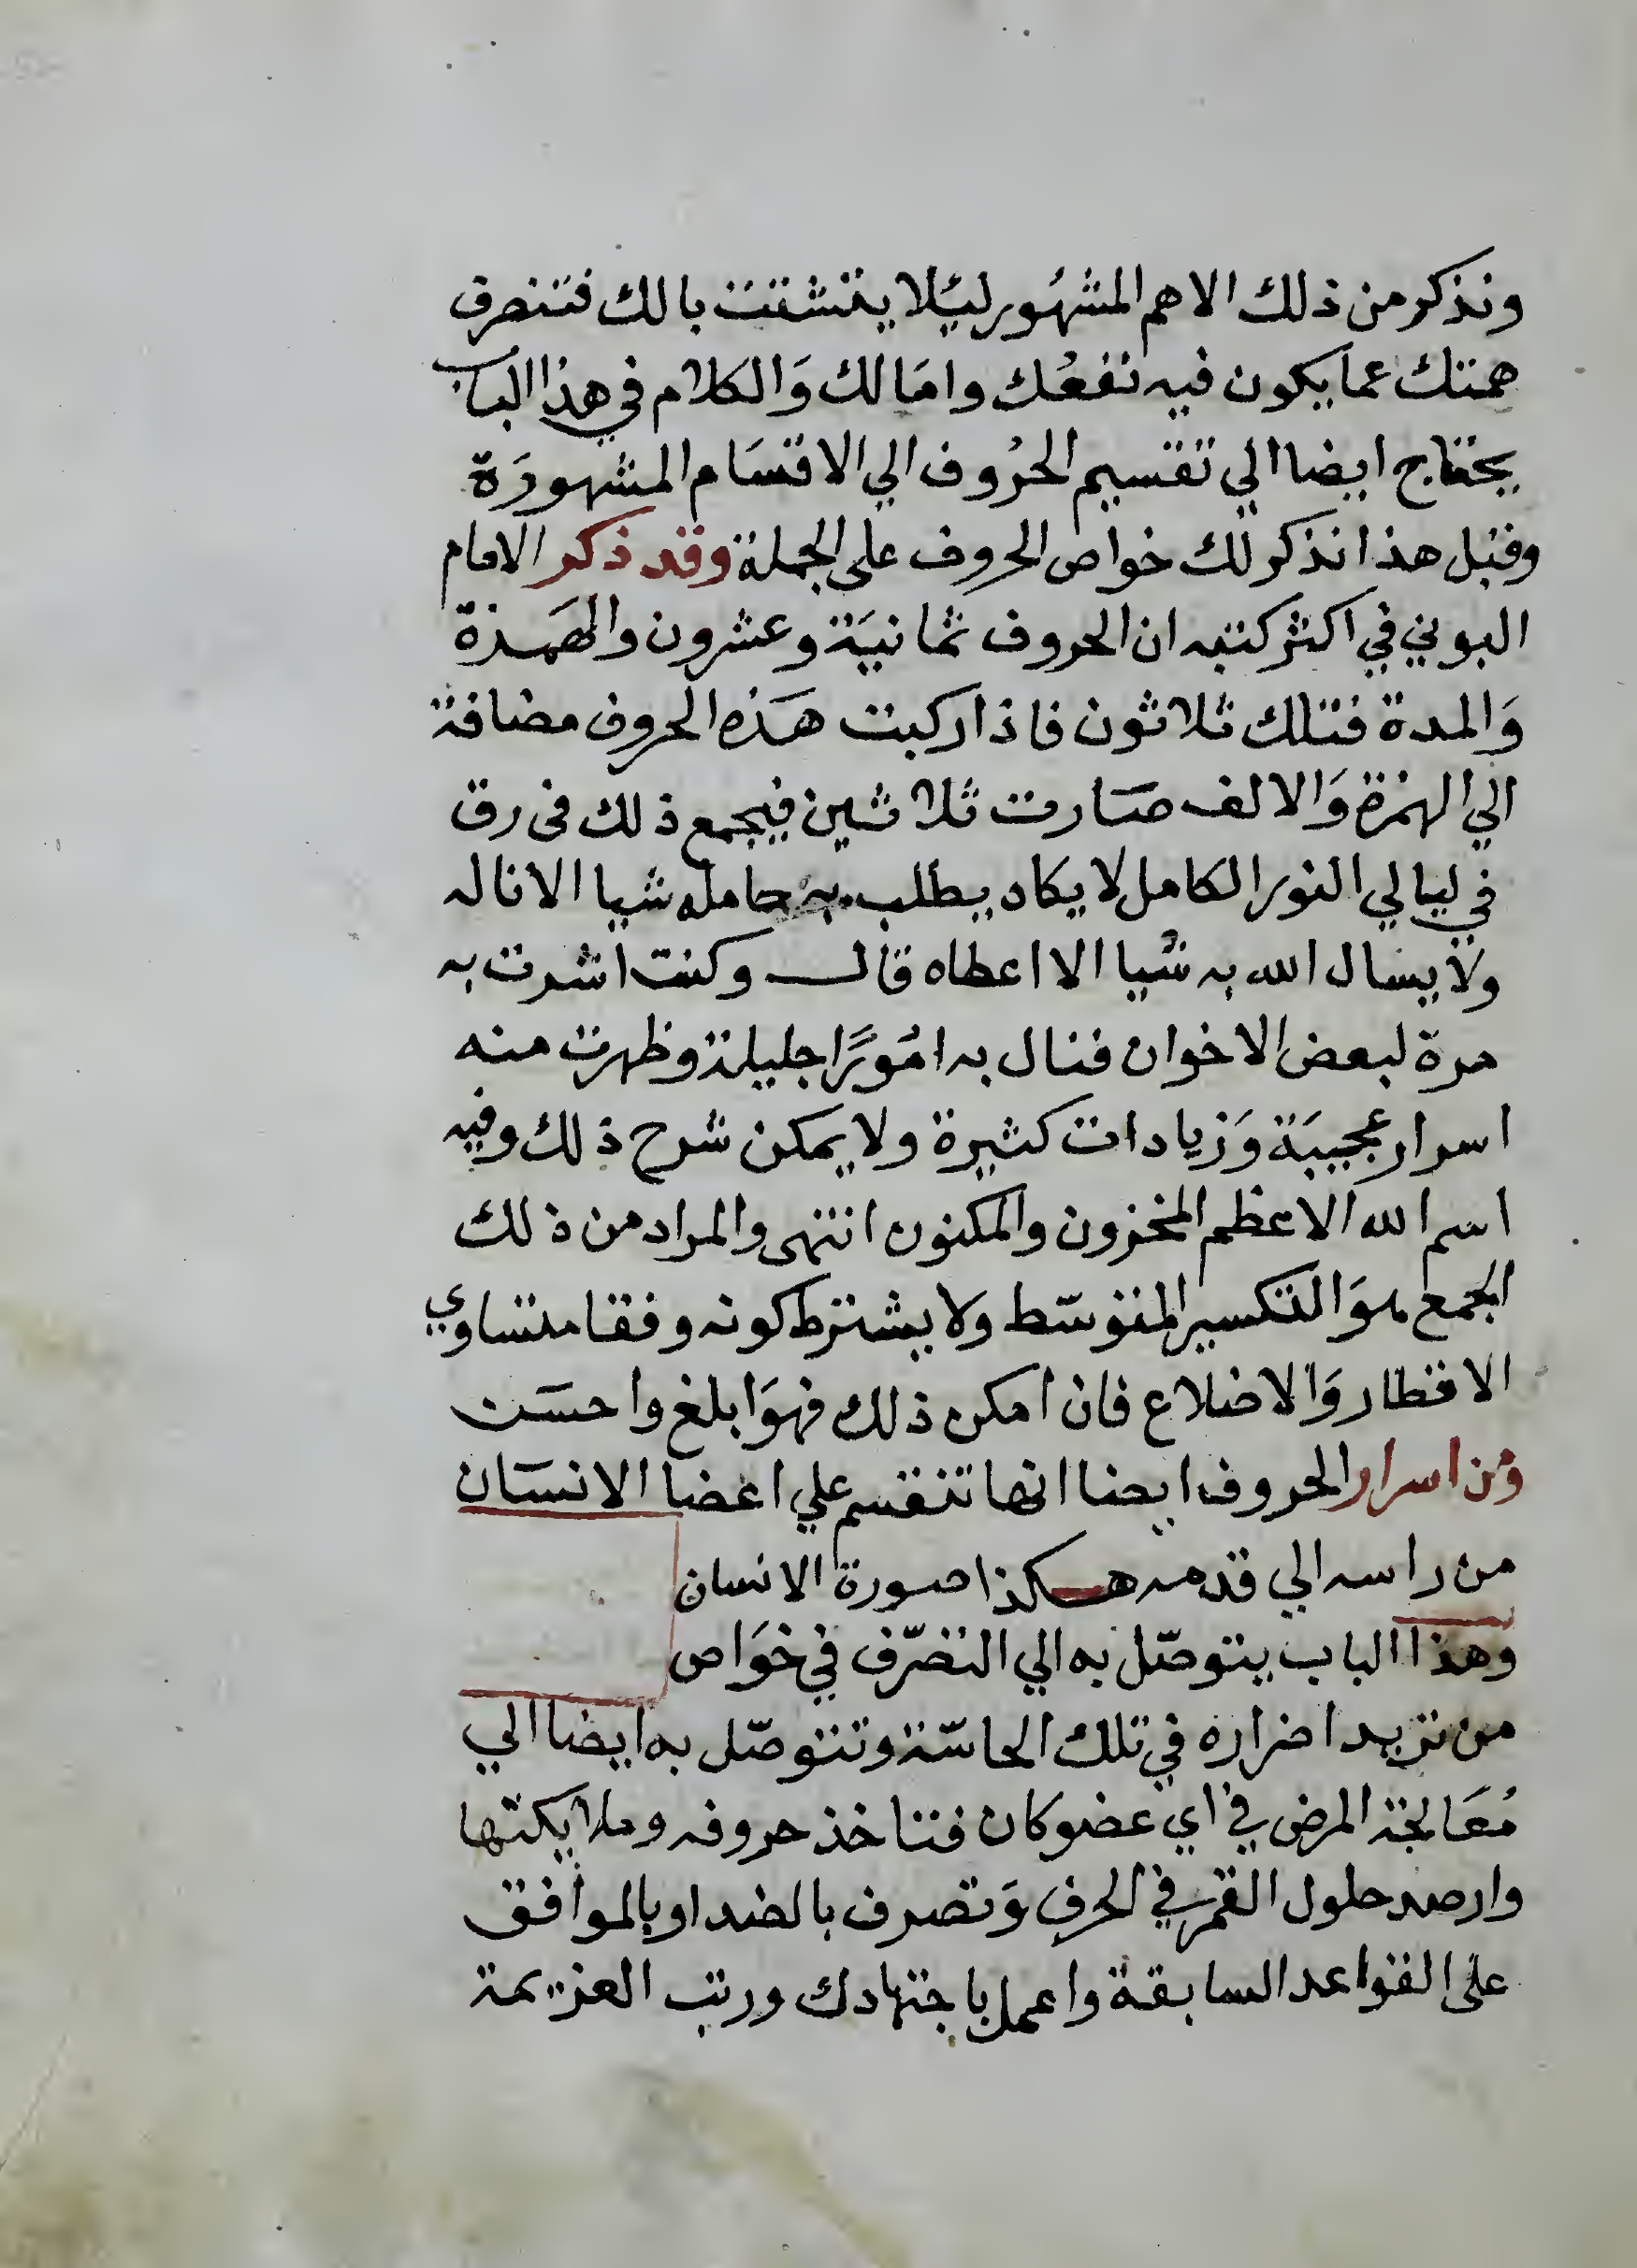 ونذكر من ذلك الاهم المشهُور ليُلا يتشتت بالك فتنصرف
همتك عما يكون فيه نفعُك وامَالك وَالكلام في هذا الباب
يحتاج ايضا الي تقسيم الحرُوف الي الاقسَام المشهورَة
وقبل هذا نذكر لك خواص الحروف على الجملة وقد ذكر الامام
البوني في اكثر كتبه ان الحروف ثمانيَة وعشرون والهمَزة
وَالمدة فتلك ثلاثون فاذا ركبت هَذه الحروف مضافة
الي الهمزة وَالالف صَارت ثلاثين فيجمع ذلك فى رق
في ليالي النور الكامل لا يكاد يطلب به حامله شيا الا ناله
ولا يسال الله به شيا الا اعطاه قال وكنت اشرت به
مرة لبعض الاخوان فنال به امُورًا جليلة وظهرت منه
اسرار عجيبَة وَزيادات كثيرة ولا يمكن شرح ذلك وفيه
اسم الله الاعظم المخزون والمكنون انتهى والمراد من ذلك
الجمع هوَ التكسير المتوسّط ولا يشترط كونه وفقا متساوي
الاقطار وَالاضلاع فان امكن ذلك فهوَ ابلغ واحسَن
ومن اسرار الحروف ايضا انها تنقسم علي اعضا الانسَان
من راسه الي قدمه هكذا صورة الانسان
وهذا الباب يتوصّل به الي التصرّف في خوَاص
من تريد اضراره في تلك الحاسّة وتتوصّل به ايضا الي
مُعَالجة المرض في اي عضو كان فتاخذ حروفه وملايكتها
وارصد حلول القمر في الحرف وَتصرف بالضد او بالموافق
على القواعد السابقة واعمل باجتهادك ورتب العزيمة